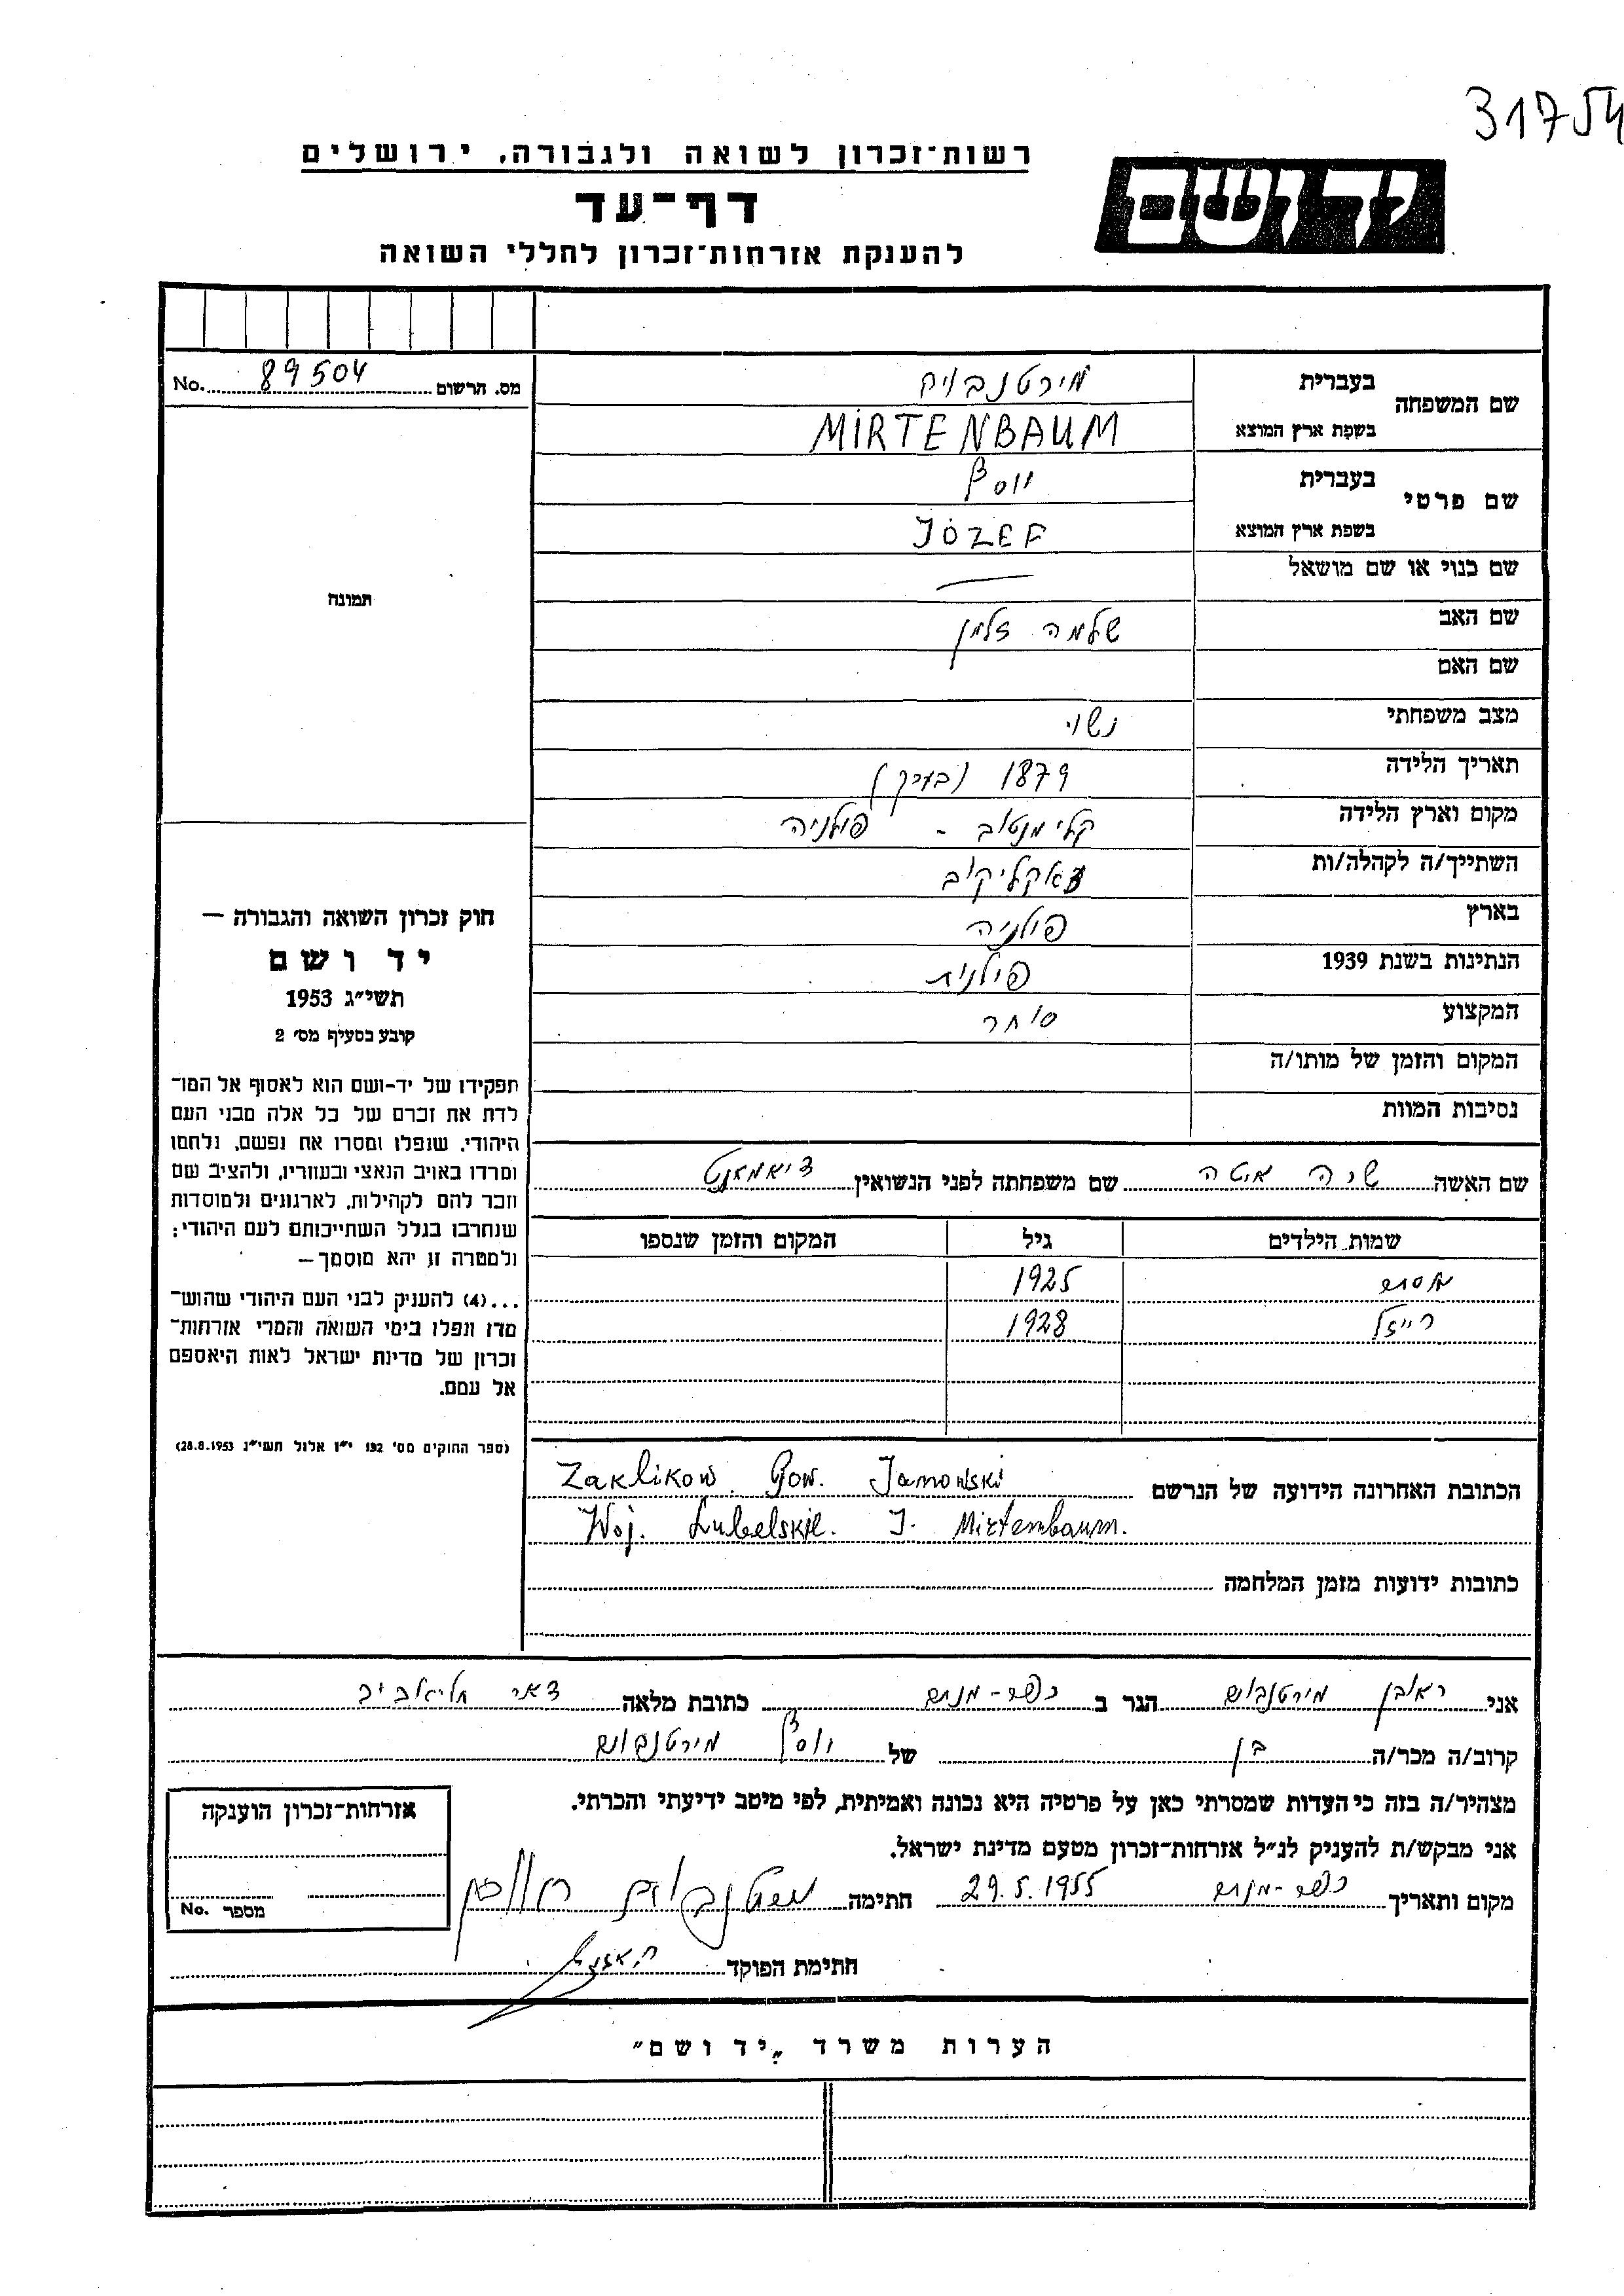 31754
רשות־זכרון לשואה ולגבורה, ירושלים
יד ושם
דף־עד
להענקת אזרחות־זכרון לחללי השואה
מס. הרשום 89504 No.
שם המשפחה
בעברית מירטנבוים
בשפת ארץ המוצא MIRTENBAUM
שם פרטי
בעברית יוסף
בשפת ארץ המוצא JÓZEF
שם כנוי או שם מושאל —
שם האב שלמה זלמן
שם האם
מצב משפחתי נשוי
תאריך הלידה 1879 (בערך)
מקום וארץ הלידה קלימנטוב - פולניה
השתייך/ה לקהלה/ות זאקליקוב
בארץ פולניה
הנתינות בשנת 1939 פולנית
המקצוע סוחר
המקום והזמן של מותו/ה
נסיבות המוות
תמונה
חוק זכרון השואה והגבורה —
יד ושם
תשי״ג 1953
קובע בסעיף מס׳ 2
תפקידו של יד-ושם הוא לאסוף אל המו־
לדת את זכרם של כל אלה מבני העם
היהודי, שנפלו ומסרו את נפשם, נלחמו
ומרדו באויב הנאצי ובעוזריו, ולהציב שם
וזכר להם לקהילות, לארגונים ולמוסדות
שנחרבו בגלל השתייכותם לעם היהודי;
ולמטרה זו יהא מוסמך —
...(4) להעניק לבני העם היהודי שהוש־
מדו ונפלו בימי השואה והמרי אזרחות־
זכרון של מדינת ישראל לאות היאספם
אל עמם.
(ספר החוקים מס׳ 132 י״ז אלול תשי״ג 28.8.1953)
שם האשה שרה איטה שם משפחתה לפני הנשואין דיאמאנט
שמות הילדים גיל המקום והזמן שנספו
1925
רייזל 1928
הכתובת האחרונה הידועה של הנרשם Zaklikow Pow. Janowski
Woj. Lubelskie. J. Mirtenbaum.
כתובות ידועות מזמן המלחמה
אני ראובן מירטנבוים הגר ב כפר-מנחם כתובת מלאה דאר
קרוב/ה מכר/ה בן של יוסף מירטנבוים
מצהיר/ה בזה כי העדות שמסרתי כאן על פרטיה היא נכונה ואמיתית, לפי מיטב ידיעתי והכרתי.
אני מבקש/ת להעניק לנ״ל אזרחות־זכרון מטעם מדינת ישראל.
מקום ותאריך כפר-מנחם 29.5.1955 חתימה מירטנבוים ראובן
חתימת הפוקד
אזרחות־זכרון הוענקה
מספר No.
הערות משרד „יד ושם״